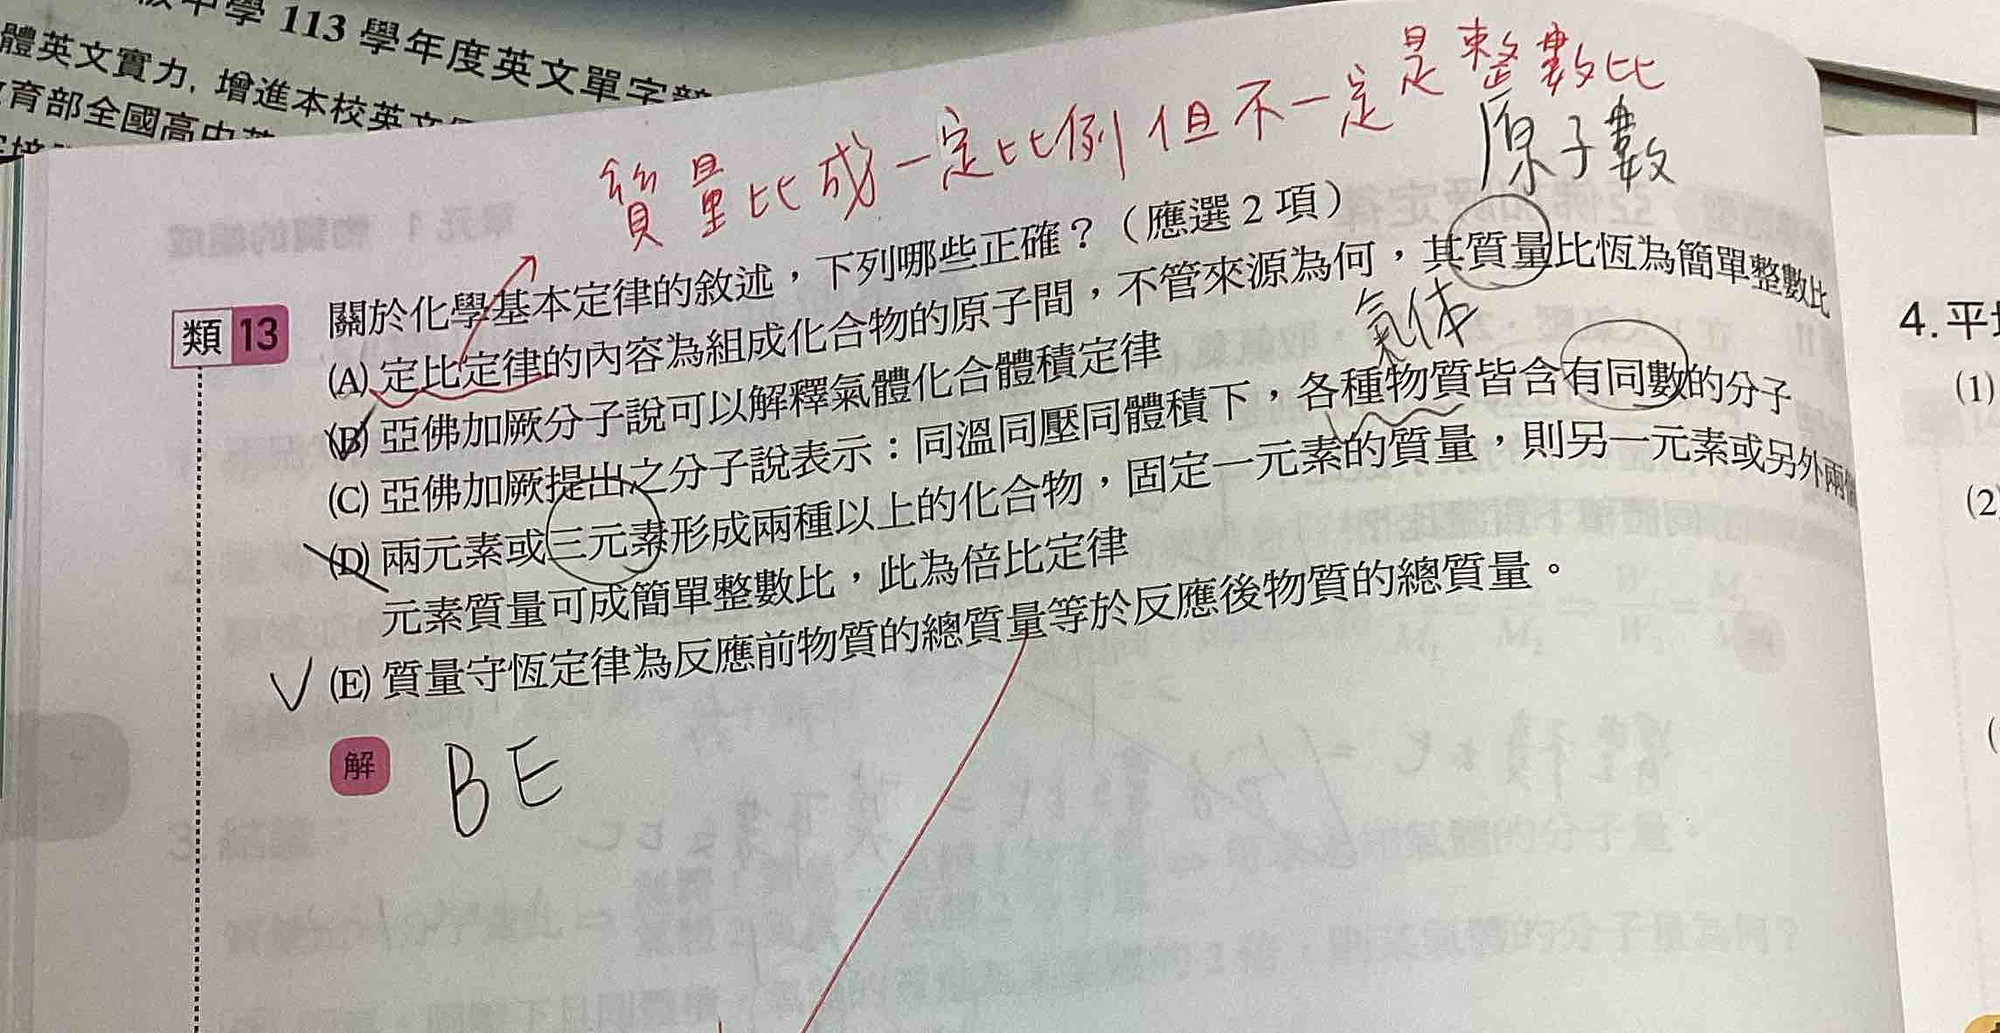 中學 113 學年度英文單字
體英文實力, 增進本校英文
育部全國高中英
質量比成一定比例但不一定是整數比
原子數
類 13 關於化學基本定律的敘述,下列哪些正確?(應選 2 項)
(A) 定比定律的內容為組成化合物的原子間,不管來源為何,其質量比恆為簡單整數比
氣体
(B) 亞佛加厥分子說可以解釋氣體化合體積定律
(C) 亞佛加厥提出之分子說表示:同溫同壓同體積下,各種物質皆含有同數的分子
(D) 兩元素或三元素形成兩種以上的化合物,固定一元素的質量,則另一元素或另外兩個
元素質量可成簡單整數比,此為倍比定律
(E) 質量守恆定律為反應前物質的總質量等於反應後物質的總質量。
解 BE
4. 平
(1)
(2)